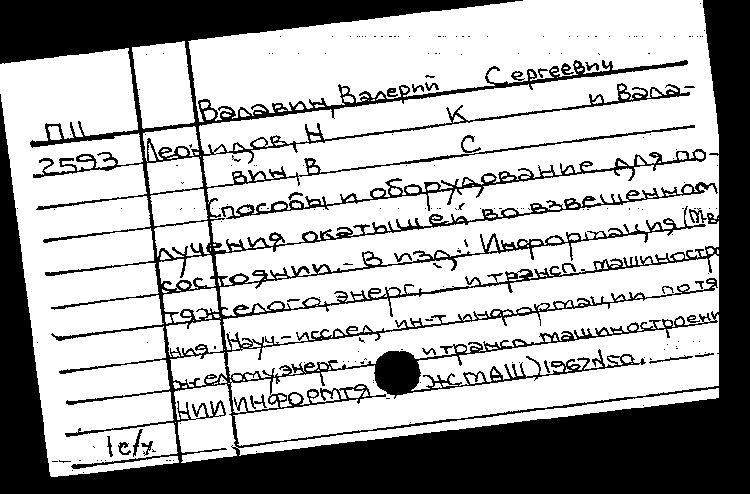 Валавин, Валерий Сергеевич
П11
2593 Леонидов, Н К и Вала-
вин, В С
Способы и оборудование для по-
лучения окатышей во взвешенном
состоянии. - В изд.: Информация (М-в
тяжелого, энерг. ... и трансп. машиностро
ния. Науч.-исслед. ин-т информации по тя
желому, энерг. ... и трансп. машиностроени
НИИИНФОРМТЯЖМАШ) 1967 N50.
1 с/х